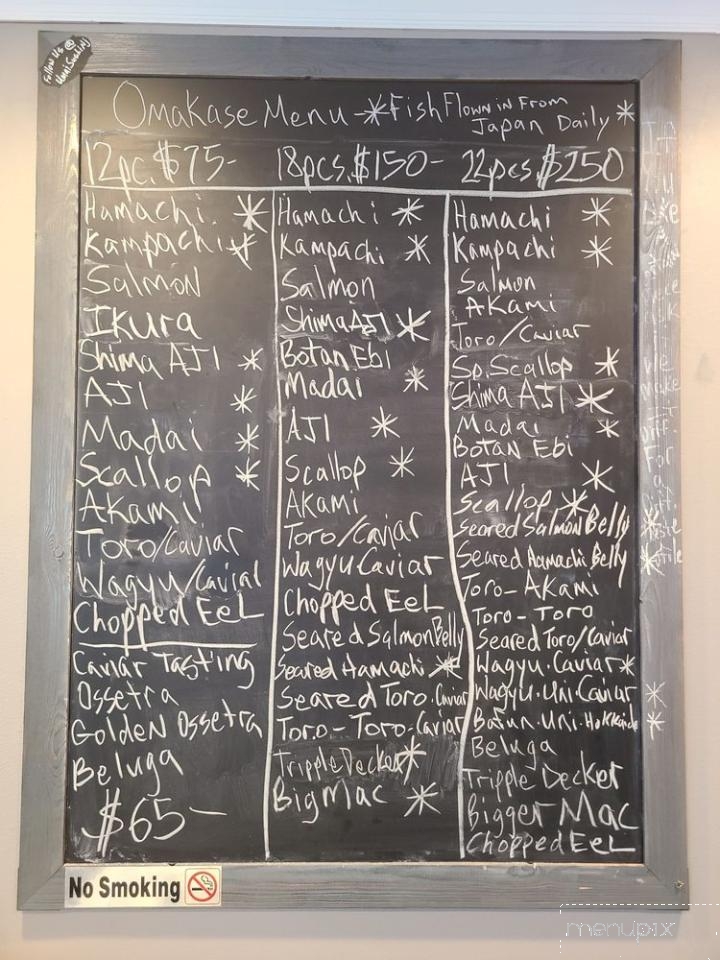 Follow Us @
Omakase Menu - *Fish Flown in From
Japan Daily *
12pc. $75-
Hamachi. *
Kampachi *
Salmon
Ikura
Shima AJI *
AJI *
Madai *
Scallop *
Akami
Toro/Caviar
Wagyu/Caviar
Chopped EeL
Caviar Tasting
Ossetra
Golden Ossetra
Beluga
$65-
18pcs. $150-
Hamachi *
Kampachi *
Salmon
Shima AJI *
Botan Ebi
Madai *
AJI *
Scallop *
AKami
Toro/Caviar
Wagyu Caviar
Chopped EeL
Seared Salmon Belly
Seared Hamachi *
Seared Toro.Caviar
Toro-Toro.Caviar
Tripple Decker *
Big Mac *
22pcs. $250
Hamachi *
Kampachi *
Salmon
AKami
Toro/Caviar
Sp. Scallop *
Shima AJI *
Madai *
Botan Ebi
AJI *
Scallop *
Seared Salmon Belly
Seared Hamachi Belly
Toro-Akami
Toro-Toro
Seared Toro/Caviar
Wagyu.Caviar *
Wagyu.Uni.Caviar *
Bafun.Uni.Hokkaido *
Beluga
Tripple Decker
Bigger Mac
Chopped EeL
We
make
it
diff.
For
a
No Smoking
menupix